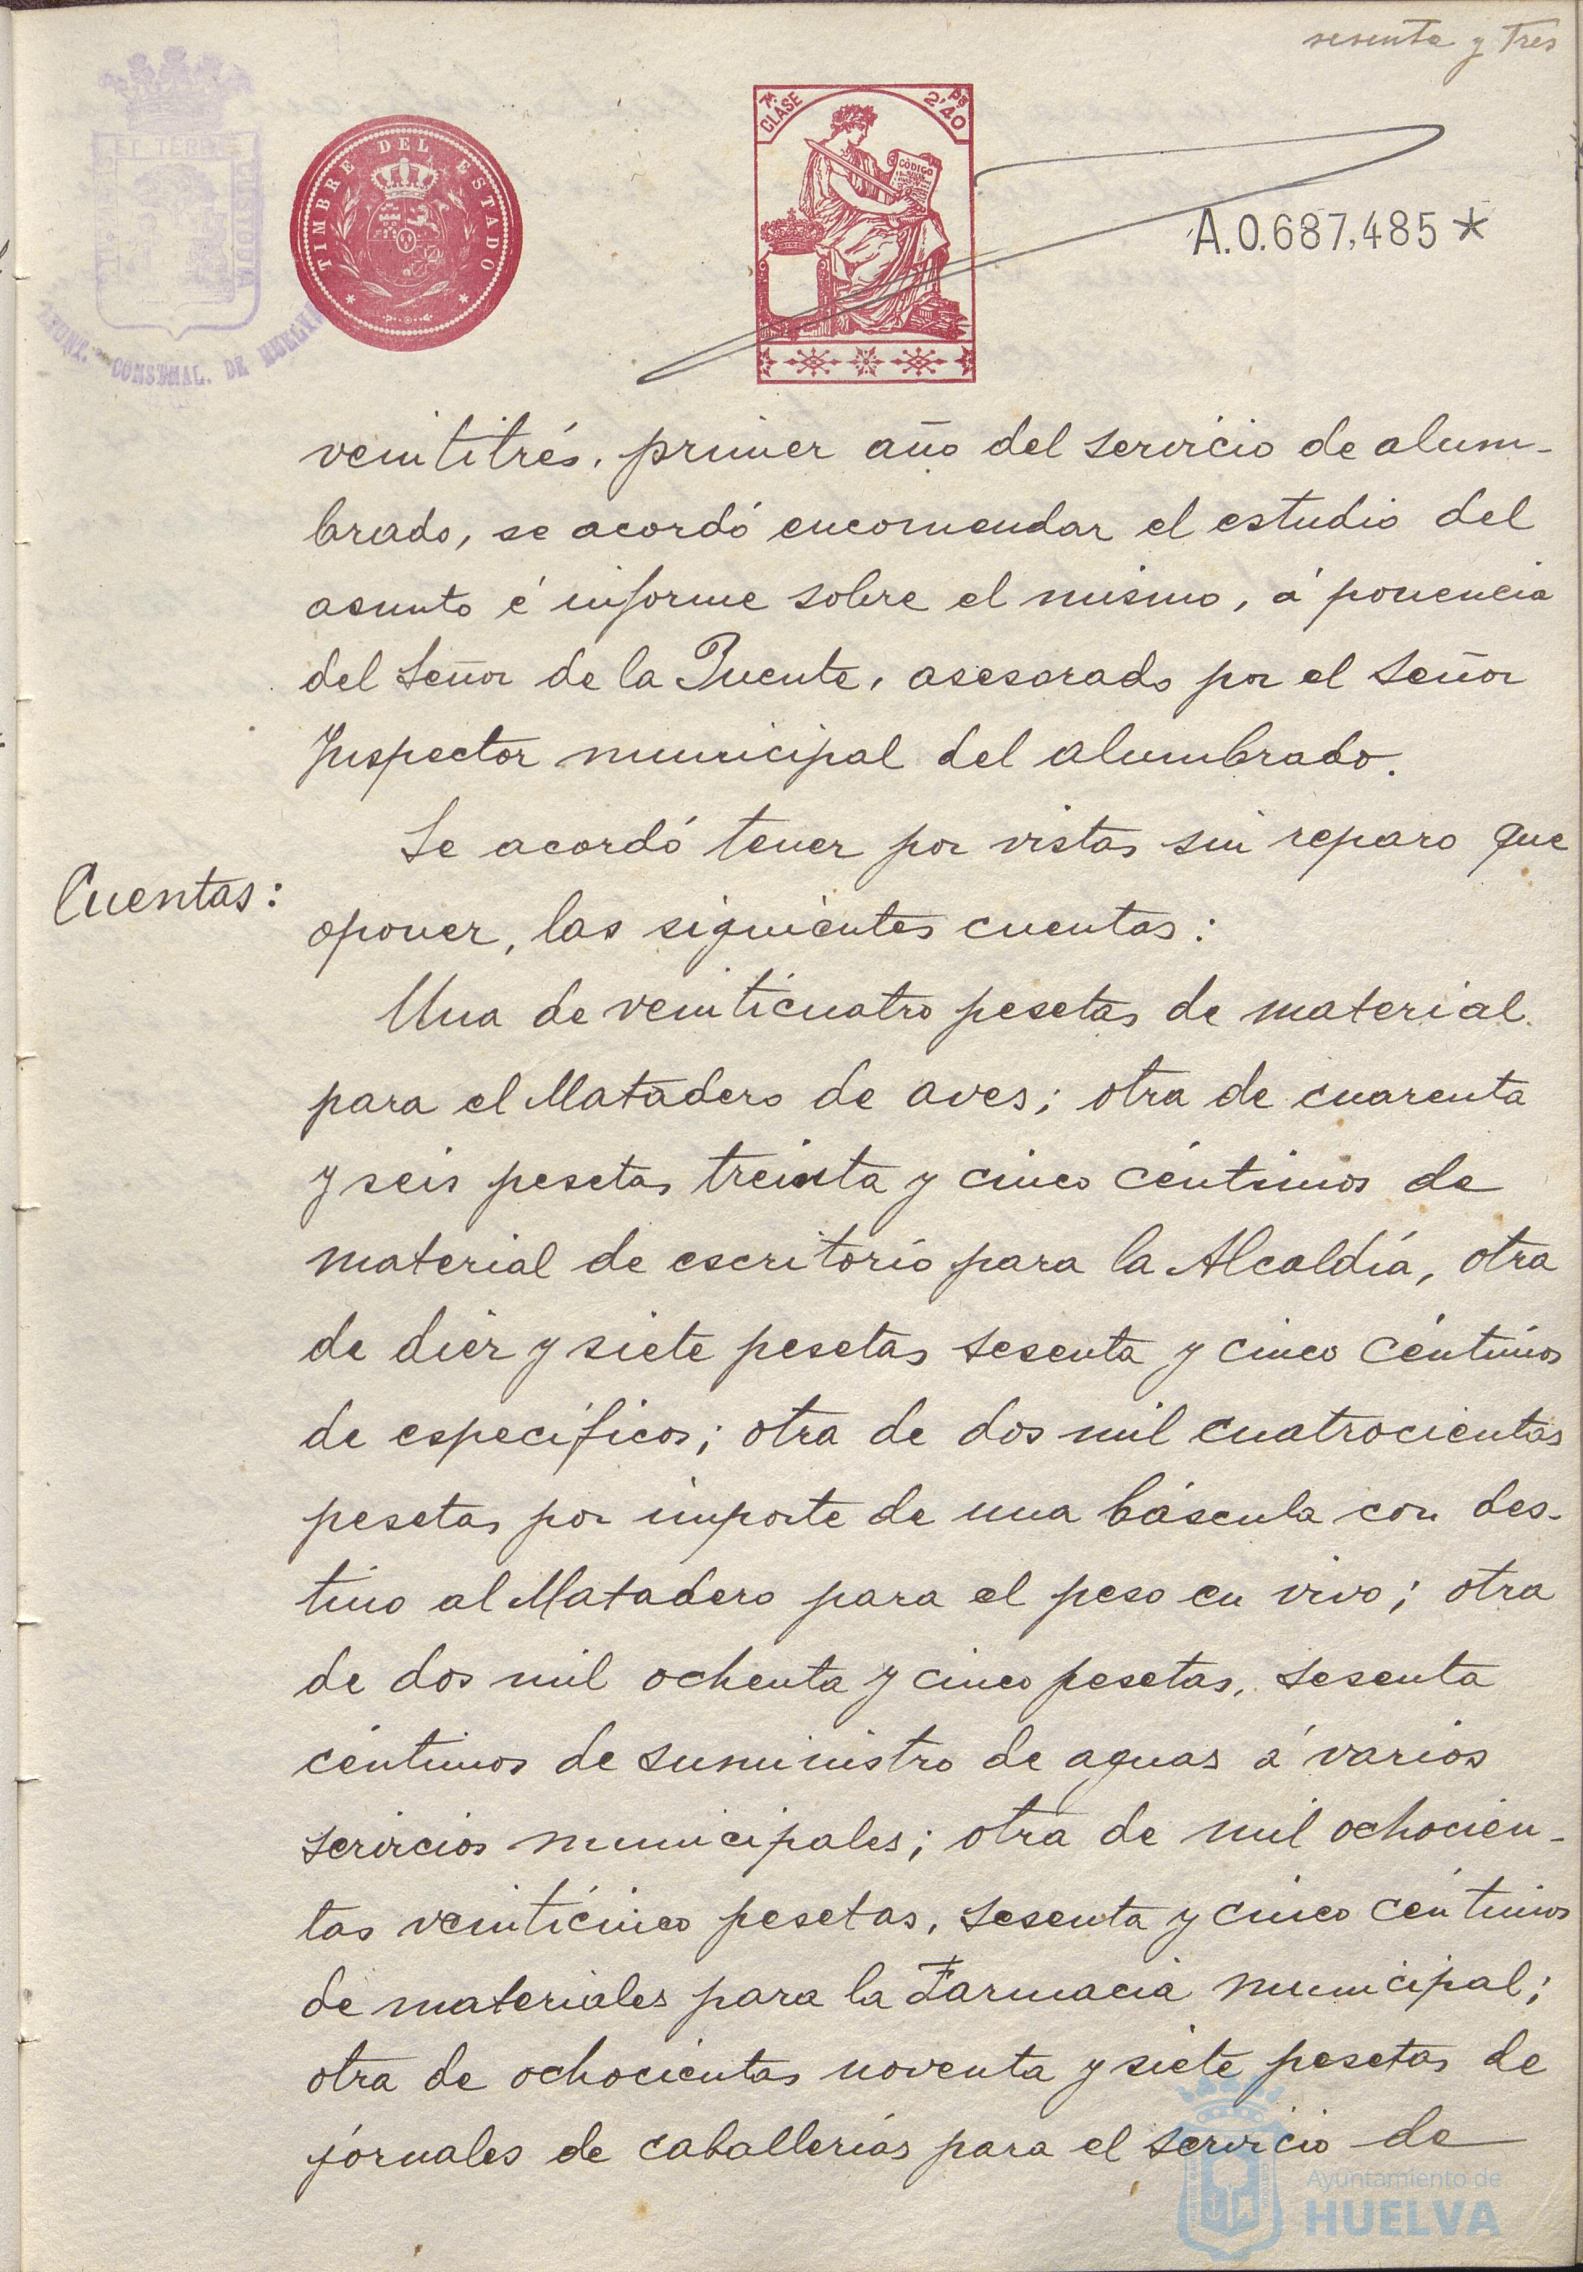 sesenta y tres
TIMBRE DEL ESTADO
7ª CLASE
Ps 2'40
CÓDIGO
A.0.687,485*
AYUNT. CONSTNAL. DE HUELVA
veintitrés, primer año del servicio de alum-
brado, se acordó encomendar el estudio del
asunto é informe sobre el mismo, á ponencia
del Señor de la Puente, asesorado por el Señor
Inspector municipal del alumbrado.
Se acordó tener por vistas sin reparo que
Cuentas:
oponer, las siguientes cuentas:
Una de veinticuatro pesetas de material
para el Matadero de aves; otra de cuarenta
y seis pesetas treinta y cinco céntimos de
material de escritorio para la Alcaldía, otra
de diez y siete pesetas sesenta y cinco céntimos
de específicos; otra de dos mil cuatrocientas
pesetas por importe de una báscula con des-
tino al Matadero para el peso en vivo; otra
de dos mil ochenta y cinco pesetas, sesenta
céntimos de suministro de aguas á varios
servicios municipales; otra de mil ochocien-
tas veinticinco pesetas, sesenta y cinco céntimos
de materiales para la Farmacia municipal;
otra de ochocientas noventa y siete pesetas de
jornales de caballerías para el servicio de
Ayuntamiento de
HUELVA